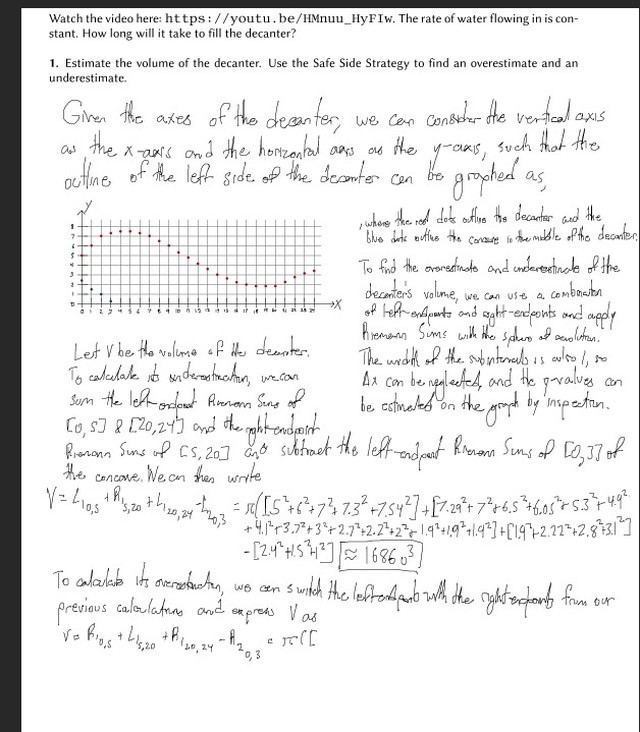 Watch the video here: https://youtu.be/HMnuu_HyFIw. The rate of water flowing in is con-
stant. How long will it take to fill the decanter?
1. Estimate the volume of the decanter. Use the Safe Side Strategy to find an overestimate and an
underestimate.
Given the axes of the decanter, we can consider the vertical axis
as the x-axis and the horizontal axis as the y-axis, such that the
outline of the left side of the decanter can be graphed as,
y
x
, where the red dots outline the decanter and the
blue dots outline the concave in the middle of the decanter.
To find the overestimate and underestimate of the
decanter's volume, we can use a combination
of left-endpoints and right-endpoints and apply
Riemann Sums with the
The width of the subintervals is also 1, so
Δx can be neglected, and the y-values can
be estimated on the graph by inspection.
Let V be the volume of the decanter.
To calculate its we can
sum the left-endpoint Riemann Sums of
[0,5] & [20,24] and the right-endpoint
Riemann Sums of [5,20] and subtract the left-endpoint Riemann Sums of [0,3] of
the concave. We can then write
V = L₁₀,₅ + R₁₅,₂₀ + L₁₂₀,₂₄ - L₂₀,₃ = π([5²+6²+7²+7.3²+7.54²]+[7.29²+7²+6.5²+6.05²+5.3²+4.9²
+4.1²+3.7²+3²+2.7²+2.2²+2²+1.9²+1.9²+1.9²]+[1.9²+2.22²+2.8²+3.1²]
-[2.4²+1.5²+1²]) ≈ 1686 u³
To calculate its we can switch the left endpoints with the right endpoints from our
previous calculations and express V as
V = R₁₀,₅ + L₁₅,₂₀ + R₁₂₀,₂₄ - R₂₀,₃ = π([